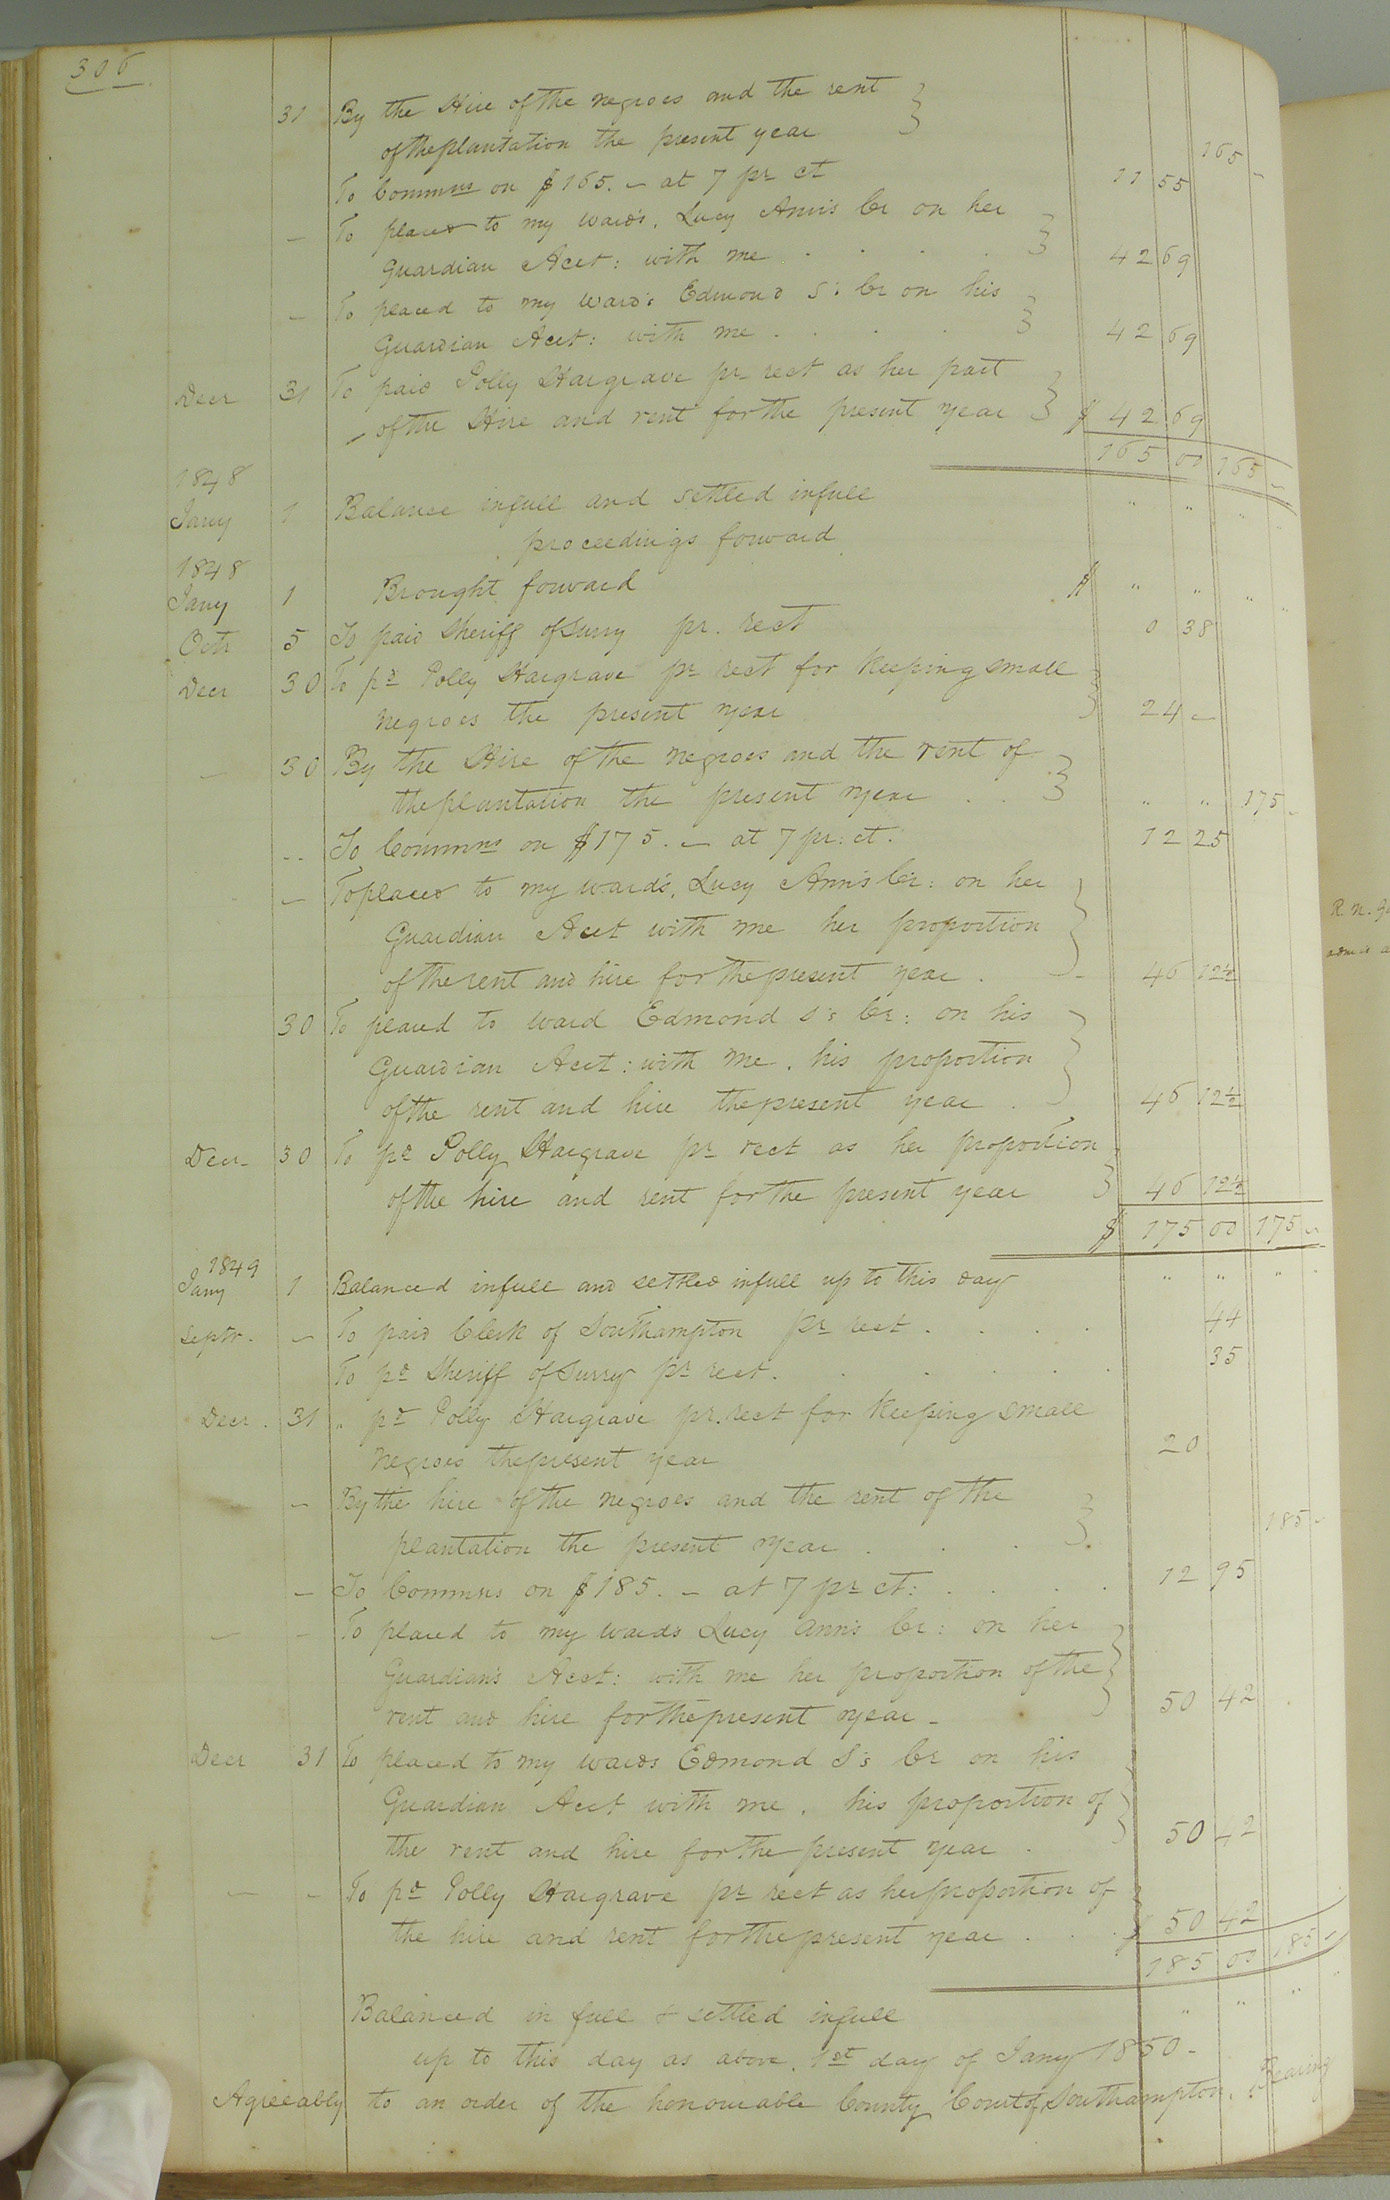 306
31 By the Hire of the negroes and the rent
of the plantation the present year 165 -
To Commns on $165. - at 7 pr ct 11 55
- To placed to my ward's, Lucy Ann's Cr on her
Guardian Acct: with me . . . . 42 69
- To placed to my ward's Edmond S's Cr on his
Guardian Acct: with me . . . . 42 69
Decr 31 To paid Polly Hargrave pr rect as her part
- of the Hire and rent for the present year $ 42 69
165 00 165 -
1848
Jany 1 Balance infull and settled infull " " " "
proceedings forward
1848
Jany 1 Brought forward $ " " " "
Octr 5 To paid Sheriff of Surry pr. rect 0 38
Decr 30 To pd Polly Hargrave pr rect for Keeping small
negroes the present year 24 -
- 30 By the Hire of the negroes and the rent of
the plantation the present year . . " " 175 -
-- To Commns on $175. - at 7 pr: ct. 12 25
- To placed to my ward's, Lucy Ann's Cr: on her
Guardian Acct with me her proportion
of the rent and hire for the present year . 46 12½
30 To placed to ward Edmond S's Cr: on his
Guardian Acct: with me, his proportion
of the rent and hire the present year . 46 12½
Decr- 30 To pd Polly Hargrave pr rect as her proportion
of the hire and rent for the present year 46 12½
$ 175 00 175 -
1849
Jany 1 Balanced infull and settled infull up to this day " " " "
Septr. - To paid Clerk of Southampton pr rect . . . . 44
To pd Sheriff of Surry pr rect. . . . . 35
Decr. 31 " pd Polly Hargrave pr. rect for Keeping small
negroes the present year 20
- By the hire of the negroes and the rent of the
plantation the present year . . . 185 -
- To Commns on $185. - at 7 pr ct: . . . . 12 95
- - To placed to my wards Lucy Ann's Cr: on her
Guardian's Acct: with me her proportion of the
rent and hire for the present year - 50 42
Decr 31 To placed to my wards Edmond S's Cr on his
Guardian Acct with me, his proportion of
the rent and hire for the present year . 50 42
- - To pd Polly Hargrave pr rect as her proportion of
the hire and rent for the present year . . . $ 50 42
185 00 185 -
Balanced in full & settled infull " " "
up to this day as above, 1st day of Jany 1850 -
Agreeably to an order of the honourable County Court of Southampton, bearing
R. N.